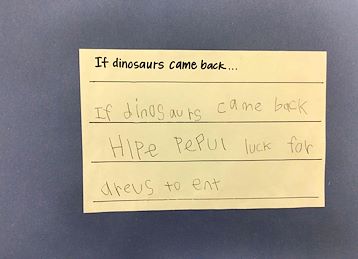 If dinosaurs came back...
If dinosaurs came back
HIPe PePUl luck for
dreus to ent